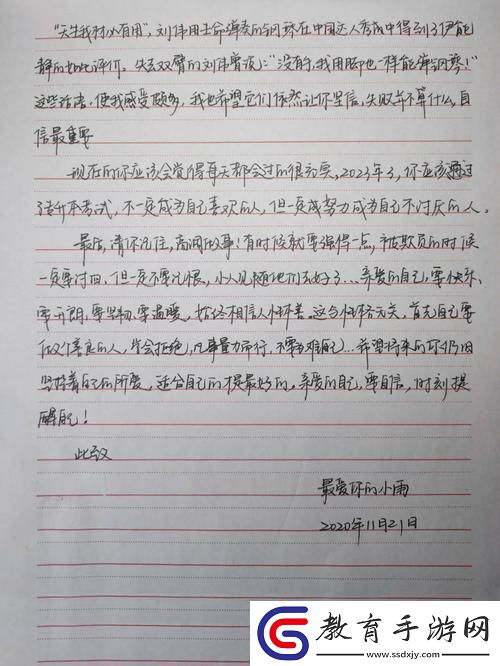 “天生我材必有用”，刘伟用生命弹奏的钢琴在中国达人秀成中得到了伊能
静的如此评价。失去双臂的刘伟曾说：“没有手，我用脚也一样能弹钢琴！”
这些话语，使我感受颇多，我也希望它们依然让你坚信，失败并不算什么，自
信最重要
现在的你应该会觉得每天都会过的很充实，2023年了，你应该通过
专升本考试，不一定成为自己喜欢的人，但一定成努力成为自己不讨厌的人。
最后，请你记住，高调做事！有时候就要强得一点，被欺负的时候
一定要讨回，但一定不要记恨，小人见随他们去好了…亲爱的自己，要快乐、
要开朗、要坚韧、要温暖，始终相信人性本善。这与性格无关，首先自己要
做个善良的人，学会拒绝，凡事量力而行，不要为难自己…希望将来的你仍旧
坚持着自己的所爱，适合自己的才是最好的。亲爱的自己，要自信，时刻提
醒自己！
此致
最爱你的小雨
2020年11月21日
教育手游网
www.ssdxjy.com